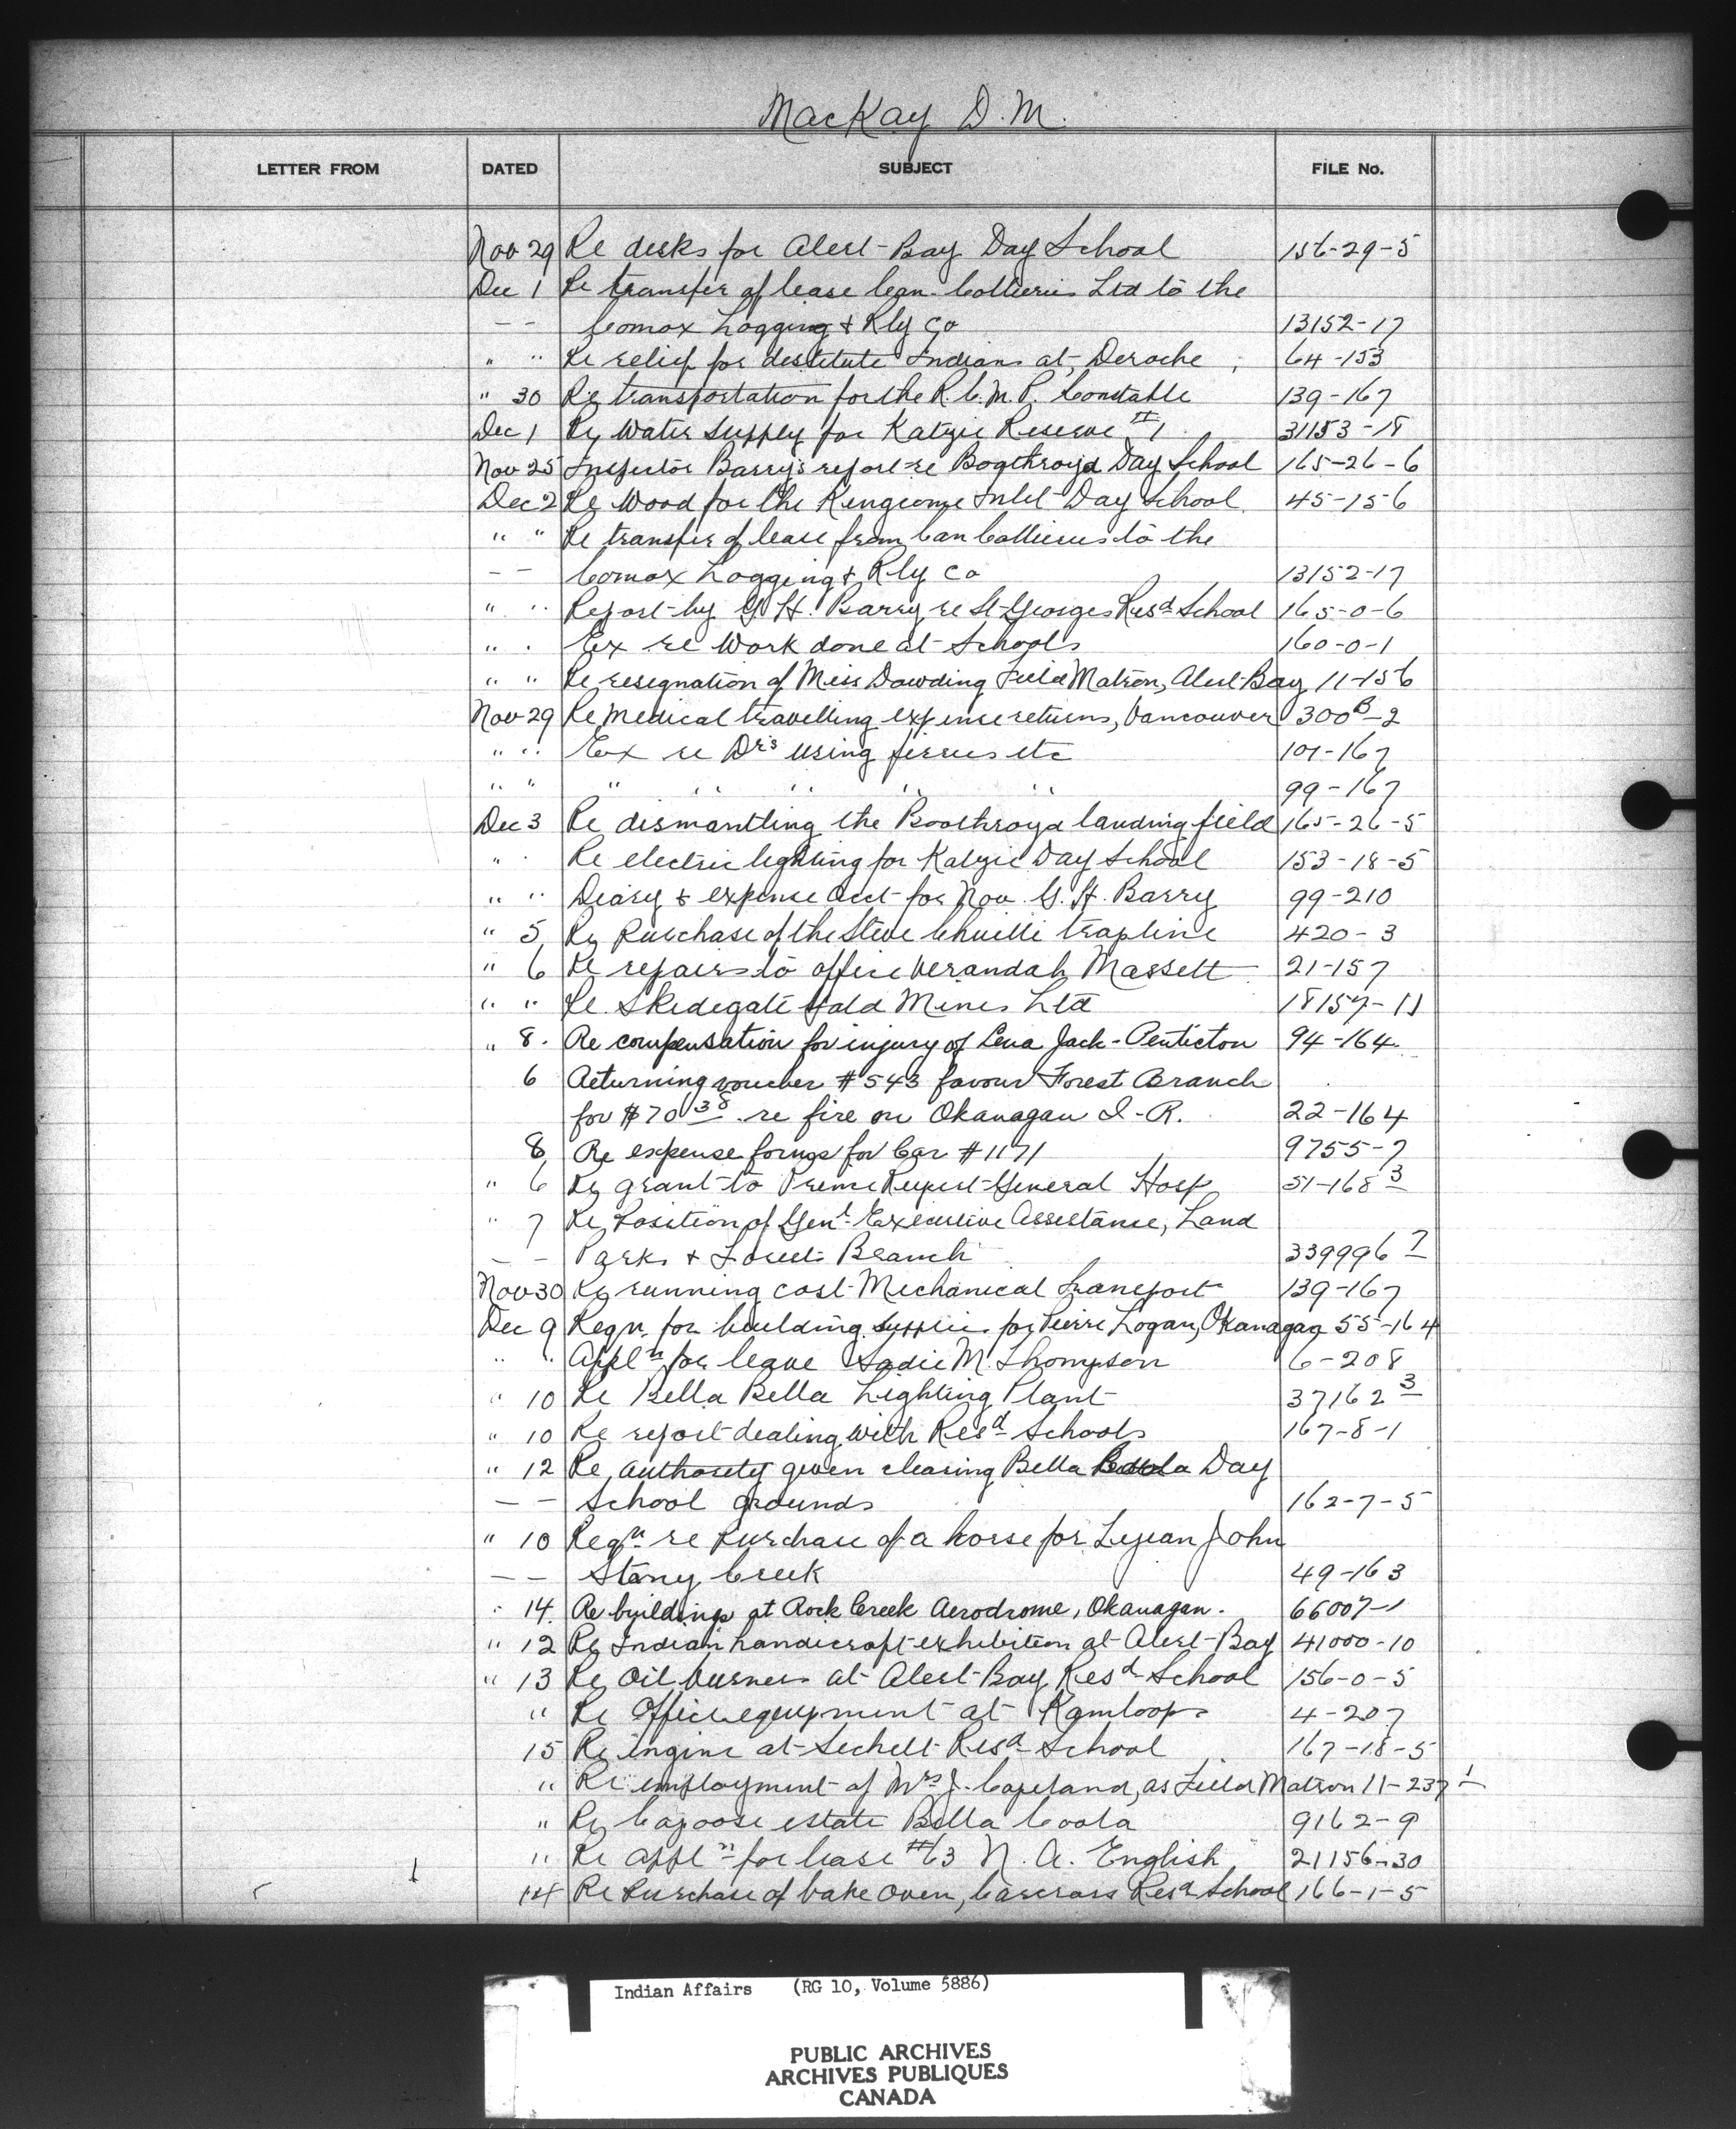 MacKay D.M.
LETTER FROM DATED SUBJECT FILE No.
Nov 29 Re desks for Alert Bay Day School 156-29-5
Dec 1 Re transfer of lease Can. Collieries Ltd to the
– – Comox Logging & Rly Co 13152-17
" " Re relief for destitute Indians at Deroche 64-153
" 30 Re transportation for the R.C.M.P. Constable 139-167
Dec 1 Re Water Supply for Katzie Reserve #1 31153-18
Nov 25 Inspector Barry's report re Boothroyd Day School 165-26-6
Dec 2 Re Wood for the Kingcome Inlet Day School 45-156
" " Re transfer of lease from Can Collieries to the
– – Comox Logging & Rly Co 13152-17
" " Report by G.H. Barry re St Georges Resd School 165-0-6
" " Ex re Work done at Schools 160-0-1
" " Re resignation of Miss Dawding Field Matron, Alert Bay 11-156
Nov 29 Re medical travelling expense returns, Vancouver 300B-2
" " Ex re Drs using ferries etc 101-167
" " " " " " " 99-167
Dec 3 Re dismantling the Boothroyd landing field 165-26-5
" " Re electric lighting for Katzie Day School 153-18-5
" " Diary & expense acct for Nov. G.H. Barry 99-210
" 5 Re Purchase of the Steve trapline 420-3
" 6 Re repairs to office verandah Massett 21-157
" " Re Skidegate Gold Mines Ltd 18157-11
" 8. Re compensation for injury of Lena Jack - Penticton 94-164
6 Returning voucher #543 favour Forest Branch
for $70 38 re fire on Okanagan I.R. 22-164
8 Re expense forms for Car #1171 9755-7
" 6 Re grant to Prince Rupert General Hosp 51-168 3
" 7 Re Position of Genl Executive Assistance, Land
– – Parks & Forests Branch 339996 7
Nov 30 Re running cost Mechanical Transport 139-167
Dec 9 Reqn for building supplies for Pierre Logan, Okanagan 55-164
" " Appln for leave Sadie M. Thompson 6-208
" 10 Re Bella Bella Lighting Plant 37162 3
" 10 Re report dealing with Resd Schools 167-8-1
" 12 Re authority given clearing Bella Coola Day
– – School grounds 162-7-5
" 10 Reqn re Purchase of a horse for John
– – Stony Creek 49-163
" 14. Re buildings at Rock Creek Aerodrome, Okanagan. 66007-1
" 12 Re Indian handicraft exhibition at Alert Bay 41000-10
" 13 Re Oil burners at Alert Bay Resd School 156-0-5
" Re Office equipment at Kamloops 4-207
15 Re engine at Sechelt Resd School 167-18-5
" Re employment of Mrs J. Copeland, as Field Matron 11-237 1
" Re Capoose estate Bella Coola 9162-9
" Re appln for lease #63 N.A. English 21156-30
14 Re Purchase of bake oven, Carcross Resd School 166-1-5
Indian Affairs (RG 10, Volume 5886)
PUBLIC ARCHIVES
ARCHIVES PUBLIQUES
CANADA